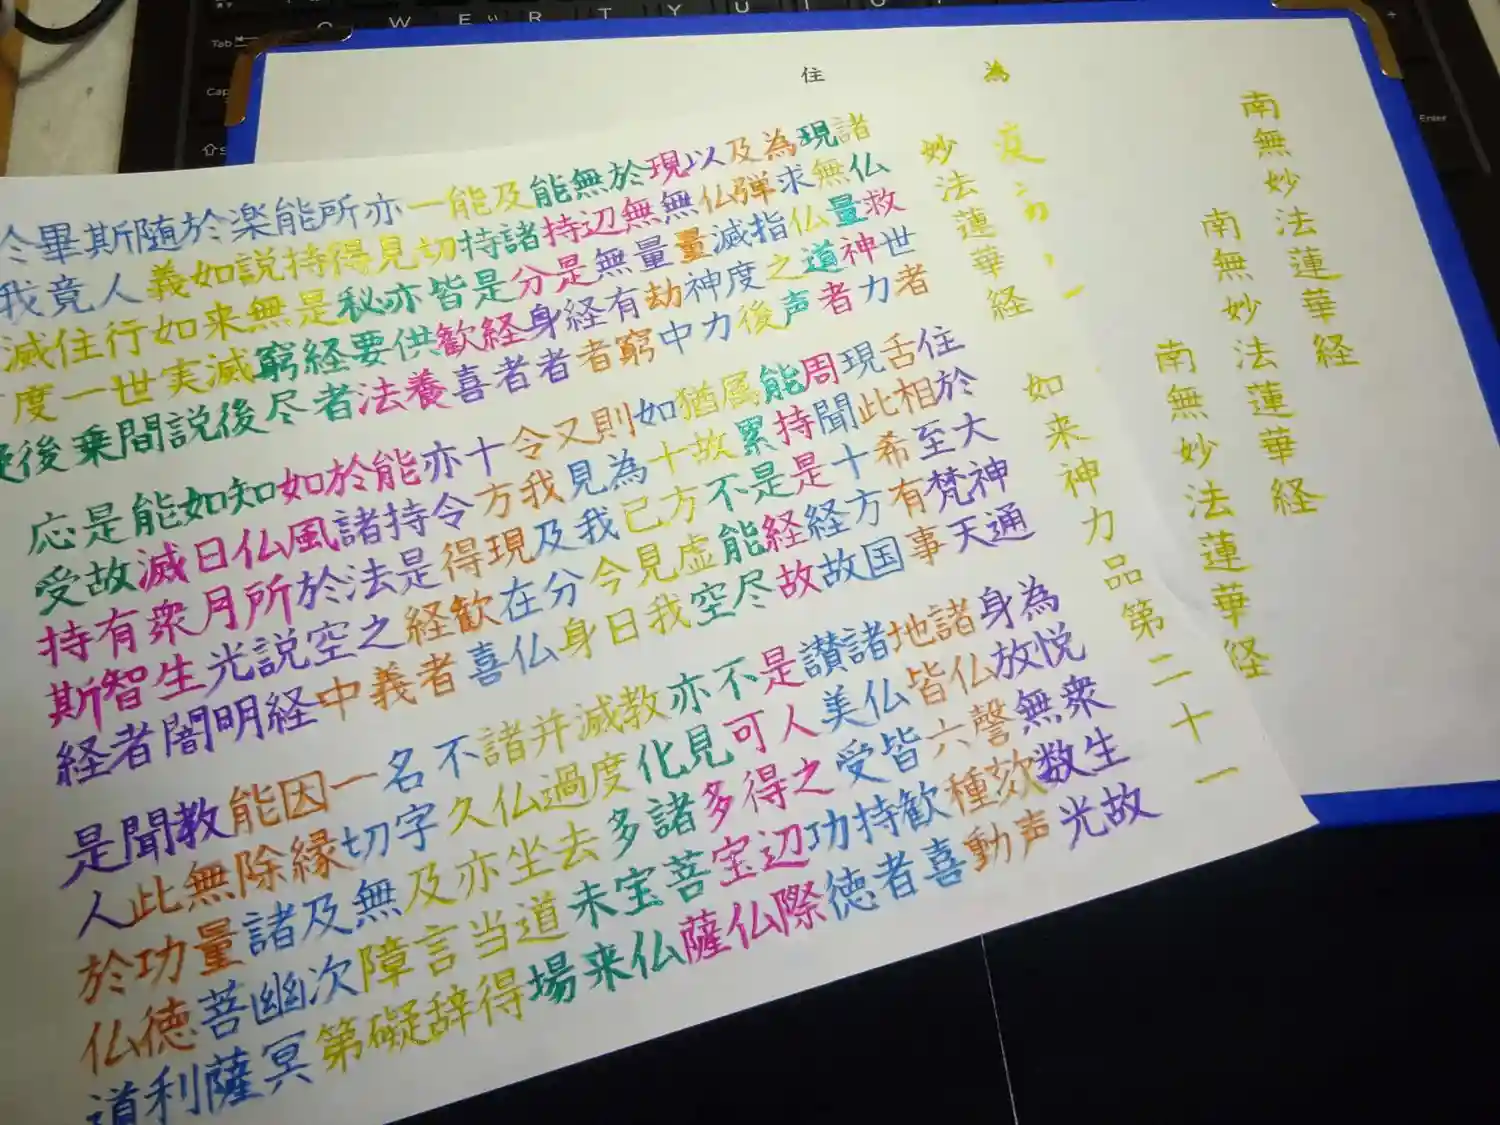 南無妙法蓮華経
南無妙法蓮華経
南無妙法蓮華経
為
住
妙法蓮華経 如来神力品第二十一
諸仏救世者 住於大神通 為悦衆生故
現無量神力 舌相至梵天 身放無数光
為求仏道者 現此希有事 諸仏謦欬声
及弾指之声 周聞十方国 地皆六種動
以仏滅度後 能持是経故 諸仏皆歓喜
現無量神力 属累是経故 讃美受持者
於無量劫中 猶故不能尽 是人之功徳
無辺無有窮 如十方虚空 不可得辺際
能持是経者 則為已見我 亦見多宝仏
及諸分身者 又見我今日 教化諸菩薩
能持是経者 令我及分身 滅度多宝仏
一切皆歓喜 十方現在仏 并過去未来
亦見亦供養 亦令得歓喜 諸仏坐道場
所得秘要法 能持是経者 不久亦当得
能持是経者 於諸法之義 名字及言辞
楽説無窮尽 如風於空中 一切無障礙
於如来滅後 知仏所説経 因縁及次第
随義如実説 如日月光明 能除諸幽冥
斯人行世間 能滅衆生闇 教無量菩薩
畢竟住一乗 是故有智者 聞此功徳利
我滅度後 応受持斯経 是人於仏道